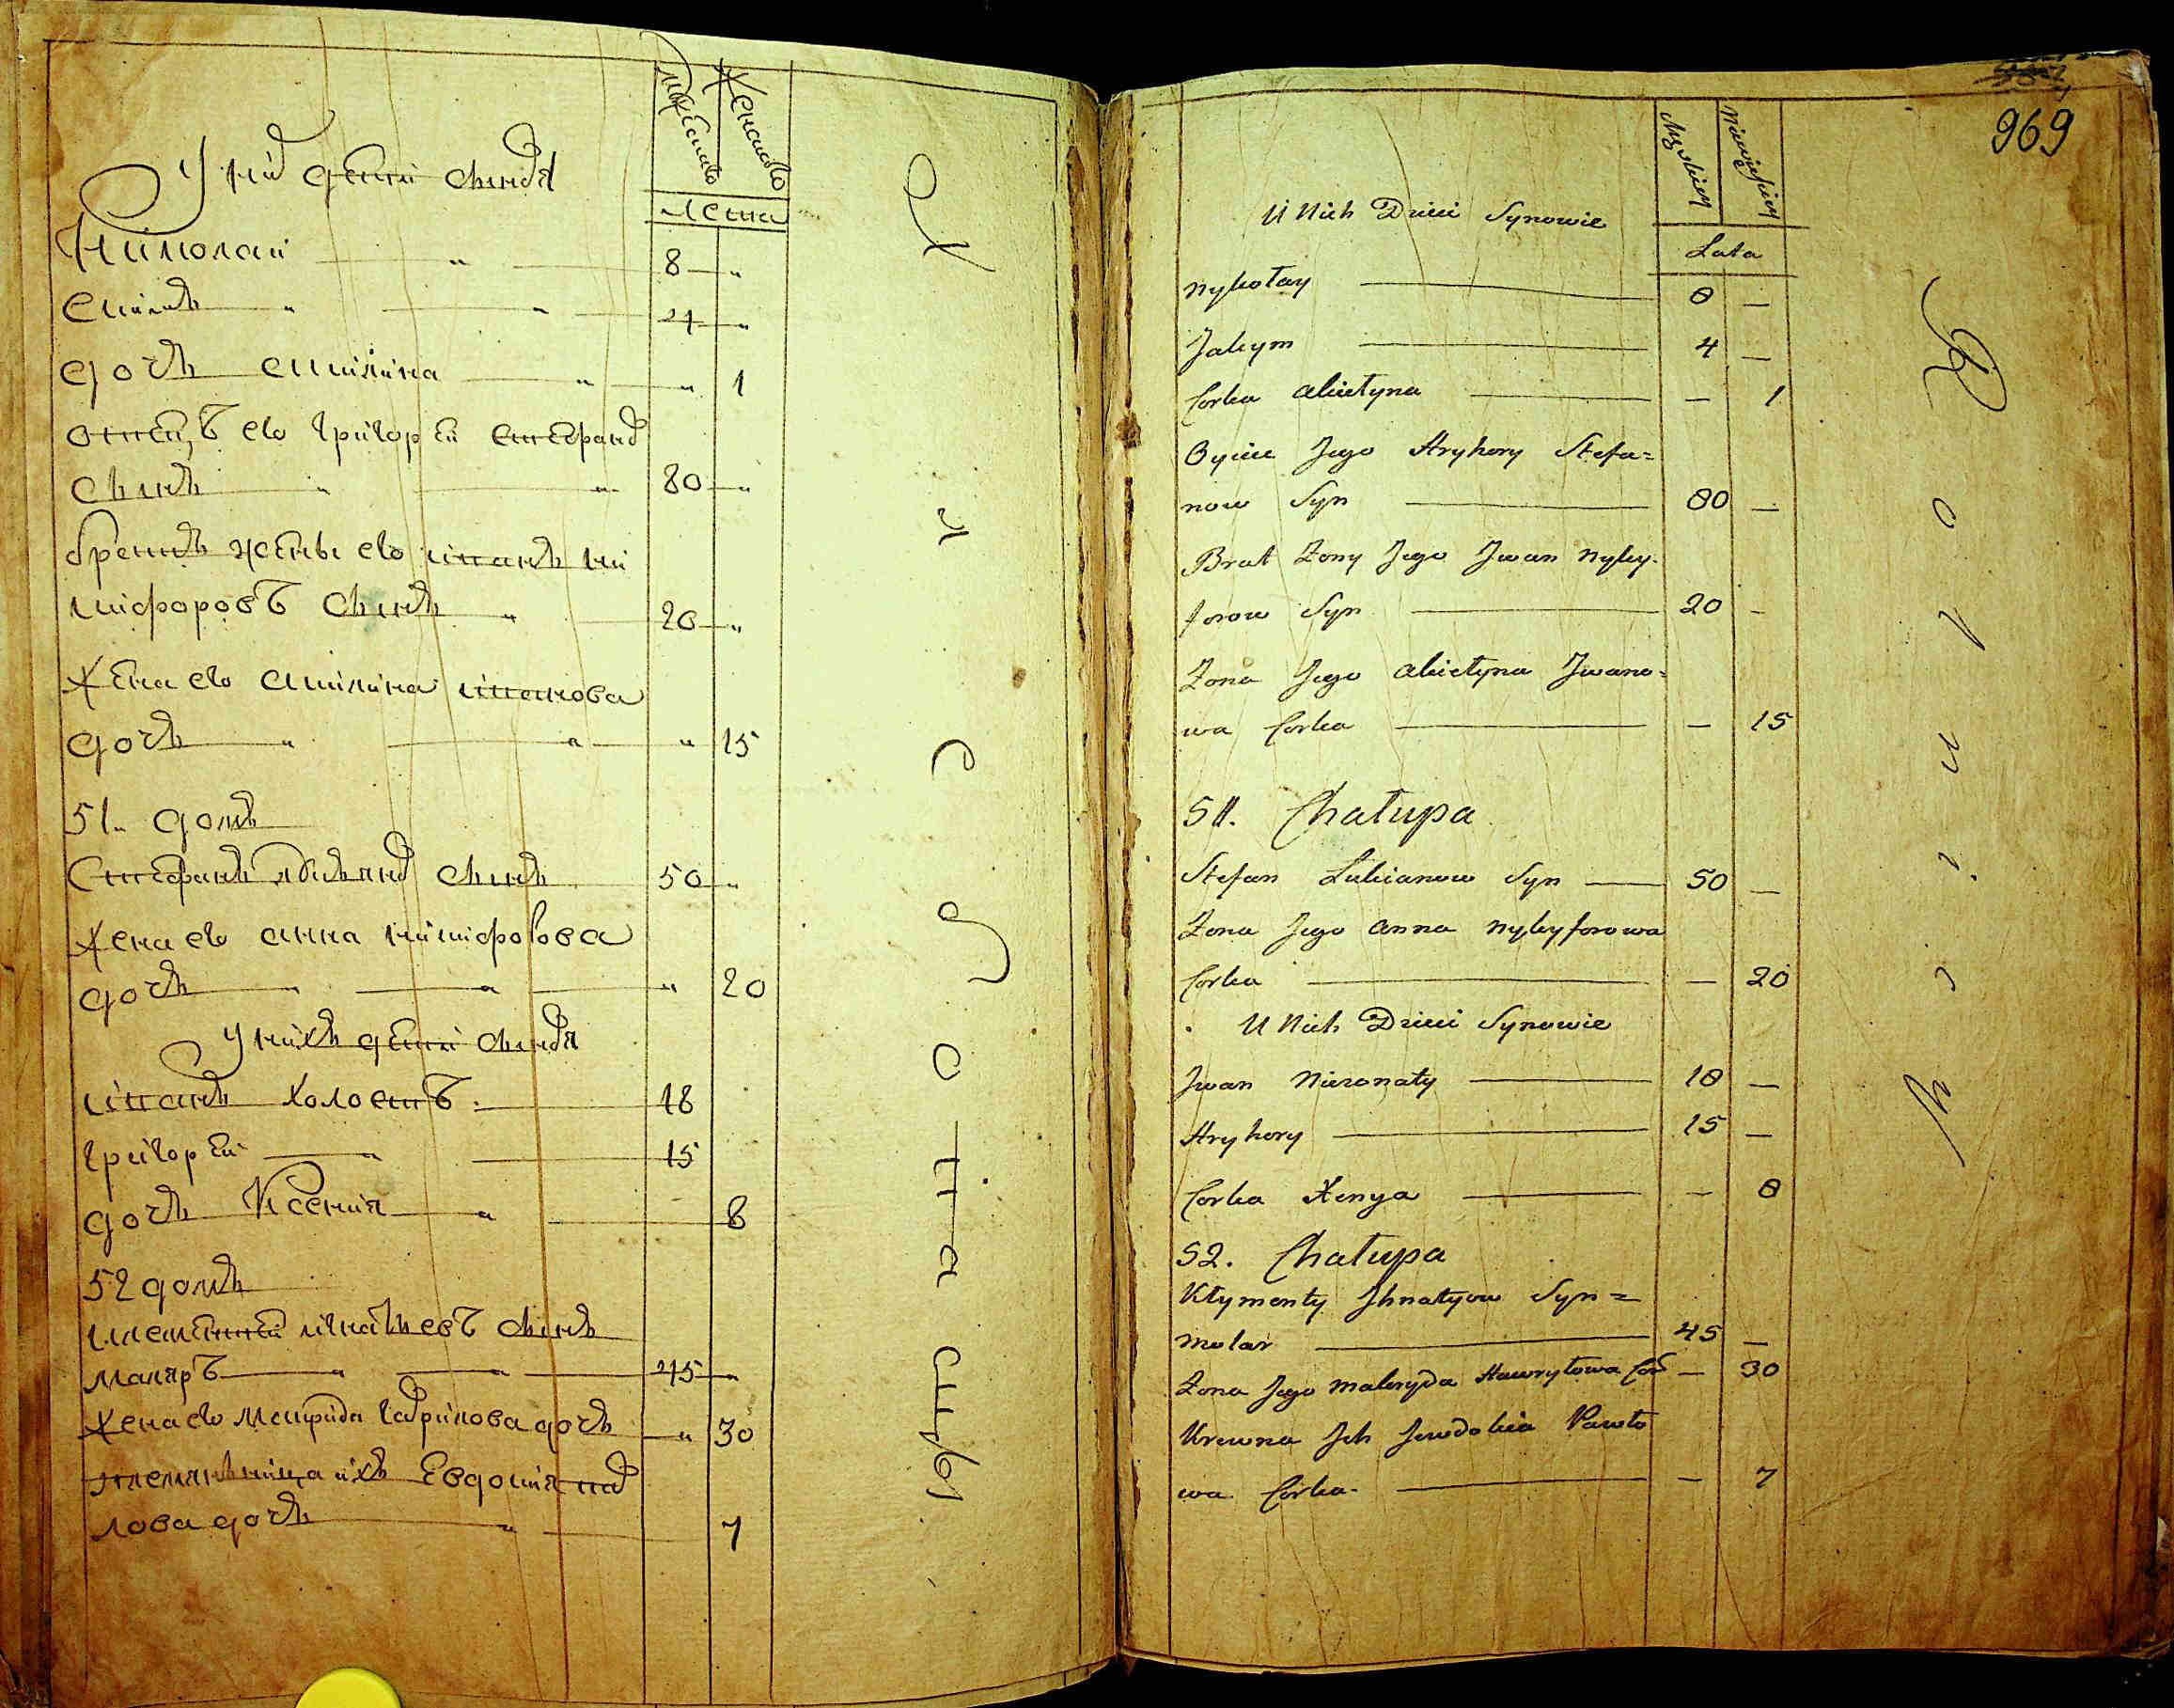 Мужеска Женска
Лета
У них дети сыновя
Николай " 8 "
Екимъ " " 4 "
дочь Акилина " " 1
отецъ его Григорей Стефанов
сынъ " " 80 "
братъ жены его иванъ ни
кифоровъ сынъ " 20 "
жена его Акилина иванова
дочь " " " 15
51. домъ
Стефанъ Лукьянов сынъ 50 "
жена его анна никифорова
дочь " " " 20
У нихъ дети сыновя
иванъ холостъ 18
Григорей " 15
дочь Ксения " 8
52 домъ
клементей игнатьевъ сынъ
маляръ " " 45 "
жена его Меукрида гаврилова дочь " 30
племянница ихъ Евдокия пав
лова дочь " 7
969
Męzkiey Niewieskiey
U Nich Dzieci Synowie
Lata
Nykołay 8 —
Jakym 4 —
Corka Akiełyna — 1
Oyciec Jego Hryhory Stefa=
now Syn 80 —
Brat Zony Jego Jwan Nyky-
forow Syn 20 —
Zona Jego Akiełyna Jwano=
wa Corka — 15
51. Chałupa
Stefan Lukianow Syn 50 —
Zona Jego Anna Nykyforowa
Corka — 20
U Nich Dzieci Synowie
Jwan Niezonaty 18 —
Hryhory 15 —
Corka Xenya — 8
52. Chałupa
Kłymenty Jhnatyow Syn =
Molar 45 —
Zona Jego Makryda Hawryłowa Cor — 30
Krewna Jch Jewdokia Pawło
wa Corka — 7